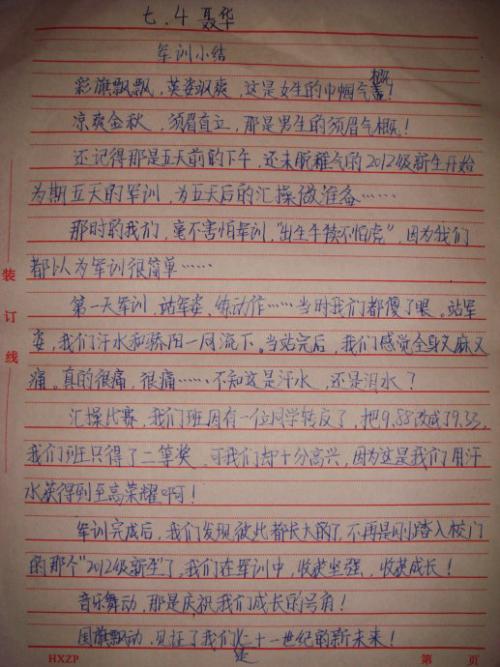 七.4 聂华
军训小结
彩旗飘飘，英姿飒爽，这是女生的巾帼气概！
凉爽金秋，须眉直立，那是男生的须眉气概！
还记得那是五天前的下午，还未脱稚气的2012级新生开始
为期五天的军训，为五天后的汇操做准备……
那时的我们，毫不害怕军训，"出生牛犊不怕虎"，因为我们
都以为军训很简单……
第一天军训，站军姿，练动作……当时我们都傻了眼。站军
姿，我们汗水和骄阳一同流下。当站完后，我们感觉全身又麻又
痛。真的很痛，很痛……不知这是汗水，还是泪水？
汇操比赛，我们班因有一位同学转反了，把9.88改成了9.33，
我们班只得了二等奖，可我们却十分高兴，因为这是我们用汗
水获得到至高荣耀啊！
军训完成后，我们发现彼此都长大的了，不再是刚踏入校门
的那个"2012级新生"了，我们在军训中，收获坚强，收获成长！
音乐舞动，那是庆祝我们成长的号角！
国旗飘动，见证了我们二十一世纪的新未来！
装
订
线
HXZP
第 页